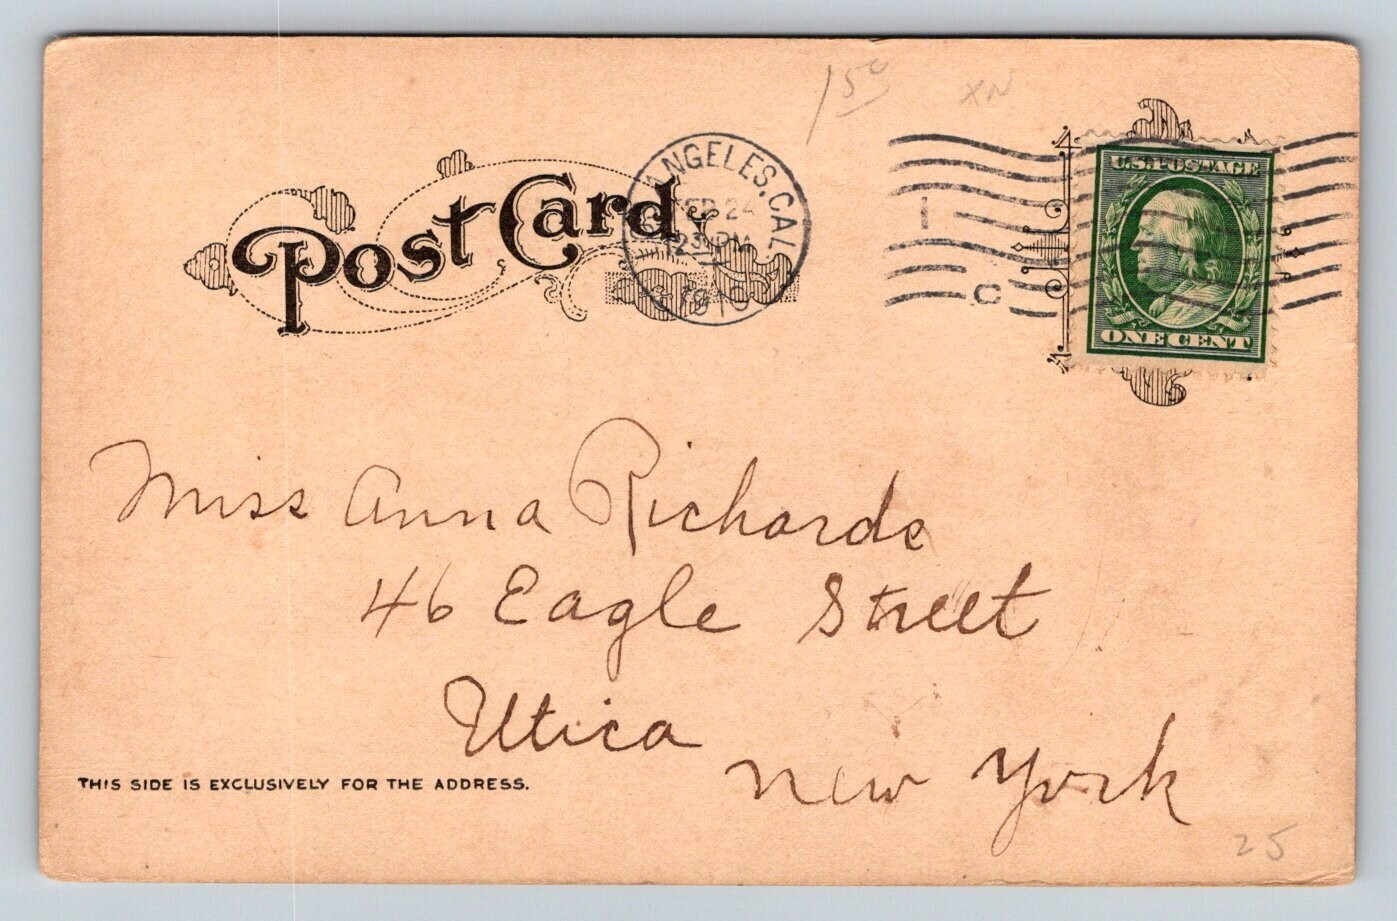 1 50 XN
Post Card
ANGELES, CAL.
FEB 24
1910
1
C
U.S. POSTAGE
ONE CENT
Miss Anna Richards
46 Eagle Street
Utica
New York
THIS SIDE IS EXCLUSIVELY FOR THE ADDRESS.
25